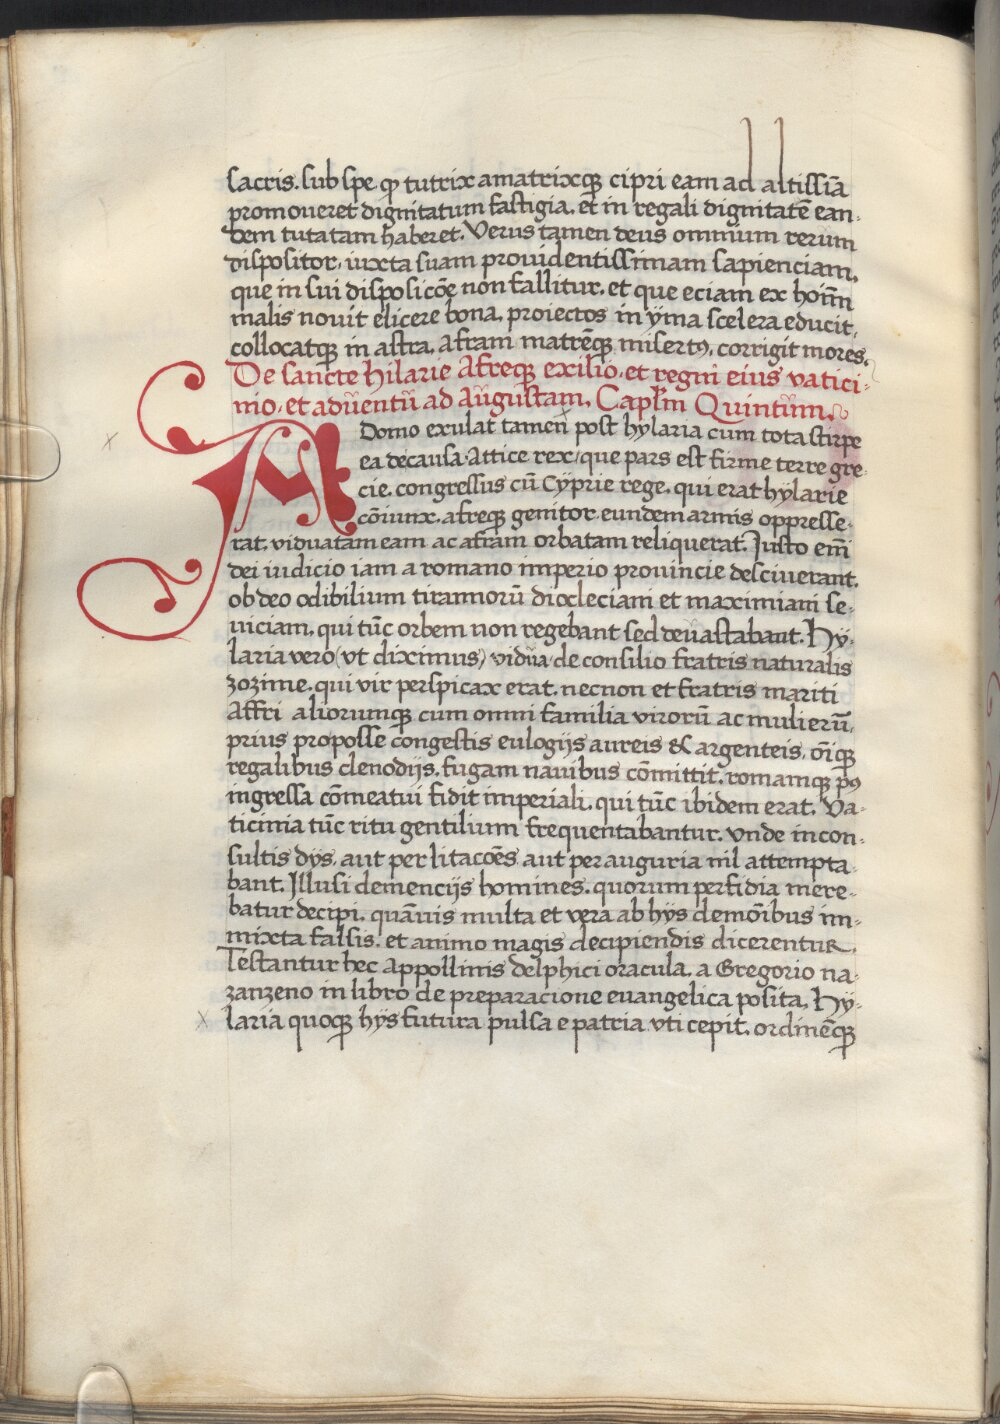 sacris. sub spe qꝫ tutrix amatrixqꝫ cipri eam ad altissiā
promoueret dignitatum fastigia. et in regali dignitatē ean-
dem tutatam haberet. Verus tamen deus omnium rerum
dispositor, iuxta suam prouidentissimam sapienciam,
que in sui disposicōe non fallitur. et que eciam ex hoīm
malis nouit elicere bona. proiectos in yma scelera educit,
collocatqꝫ in astra. afram matrēqꝫ misertꝰ, corrigit mores.
De sancte hilarie Afreqꝫ exilio. et regni eius vatici-
nio. et aduentū ad Augustam. Caplm Quintum.
A Domo exulat tamen post hylaria cum tota stirpe
ea decausa. Attice rex, que pars est firme terre gre-
cie. congressus cū Cyprie rege. qui erat hylarie
cōiunx. afreqꝫ genitor. eundem armis oppresse-
rat. viduatam eam ac afram orbatam reliquerat. Justo em̄
dei iudicio iam a romano imperio prouincie desciuerant.
ob deo odibilium tirannorū diocleciani et maximiani se-
uiciam. qui tūc orbem non regebant sed deuastabant. Hy-
laria vero (vt diximus) vidua de consilio fratris naturalis
zozime. qui vir perspicax erat. necnon et fratris mariti
Affri aliorumqꝫ cum omni familia virorū ac mulierū,
prius proposse congestis eulogijs aureis & argenteis. oīqꝫ
regalibus clenodijs. fugam nauibus cōmittit. romamqꝫ pꝰ
ingressa cōmeatui fidit imperiali. qui tūc ibidem erat. Va-
ticinia tūc ritu gentilium frequentabantur. vnde incon-
sultis dys. aut per litacōes aut per auguria nil attempta-
bant. Illusi demencijs homines. quorum perfidia mere-
batur decipi. quāuis multa et vera ab hys demōibus im-
mixta falsis. et animo magis decipiendis dicerentur.
Testantur hec appollinis delphici oracula. a Gregorio na-
zanzeno in libro de preparacione euangelica posita. Hy-
laria quoqꝫ hijs futura pulsa e patria vti cepit. ordinēqꝫ